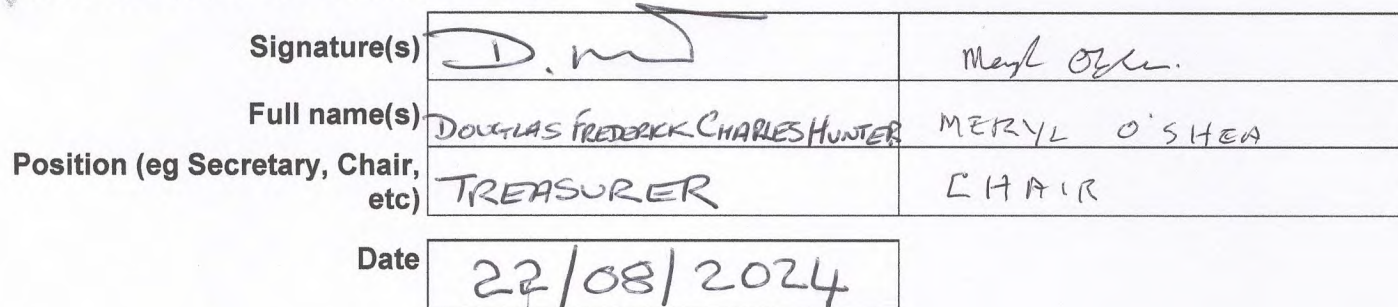 Signature(s)
Full name(s) DOUGLAS FREDERICK CHARLES HUNTER MERYL O'SHEA
Position (eg Secretary, Chair,
etc) TREASURER CHAIR
Date 22/08/2024